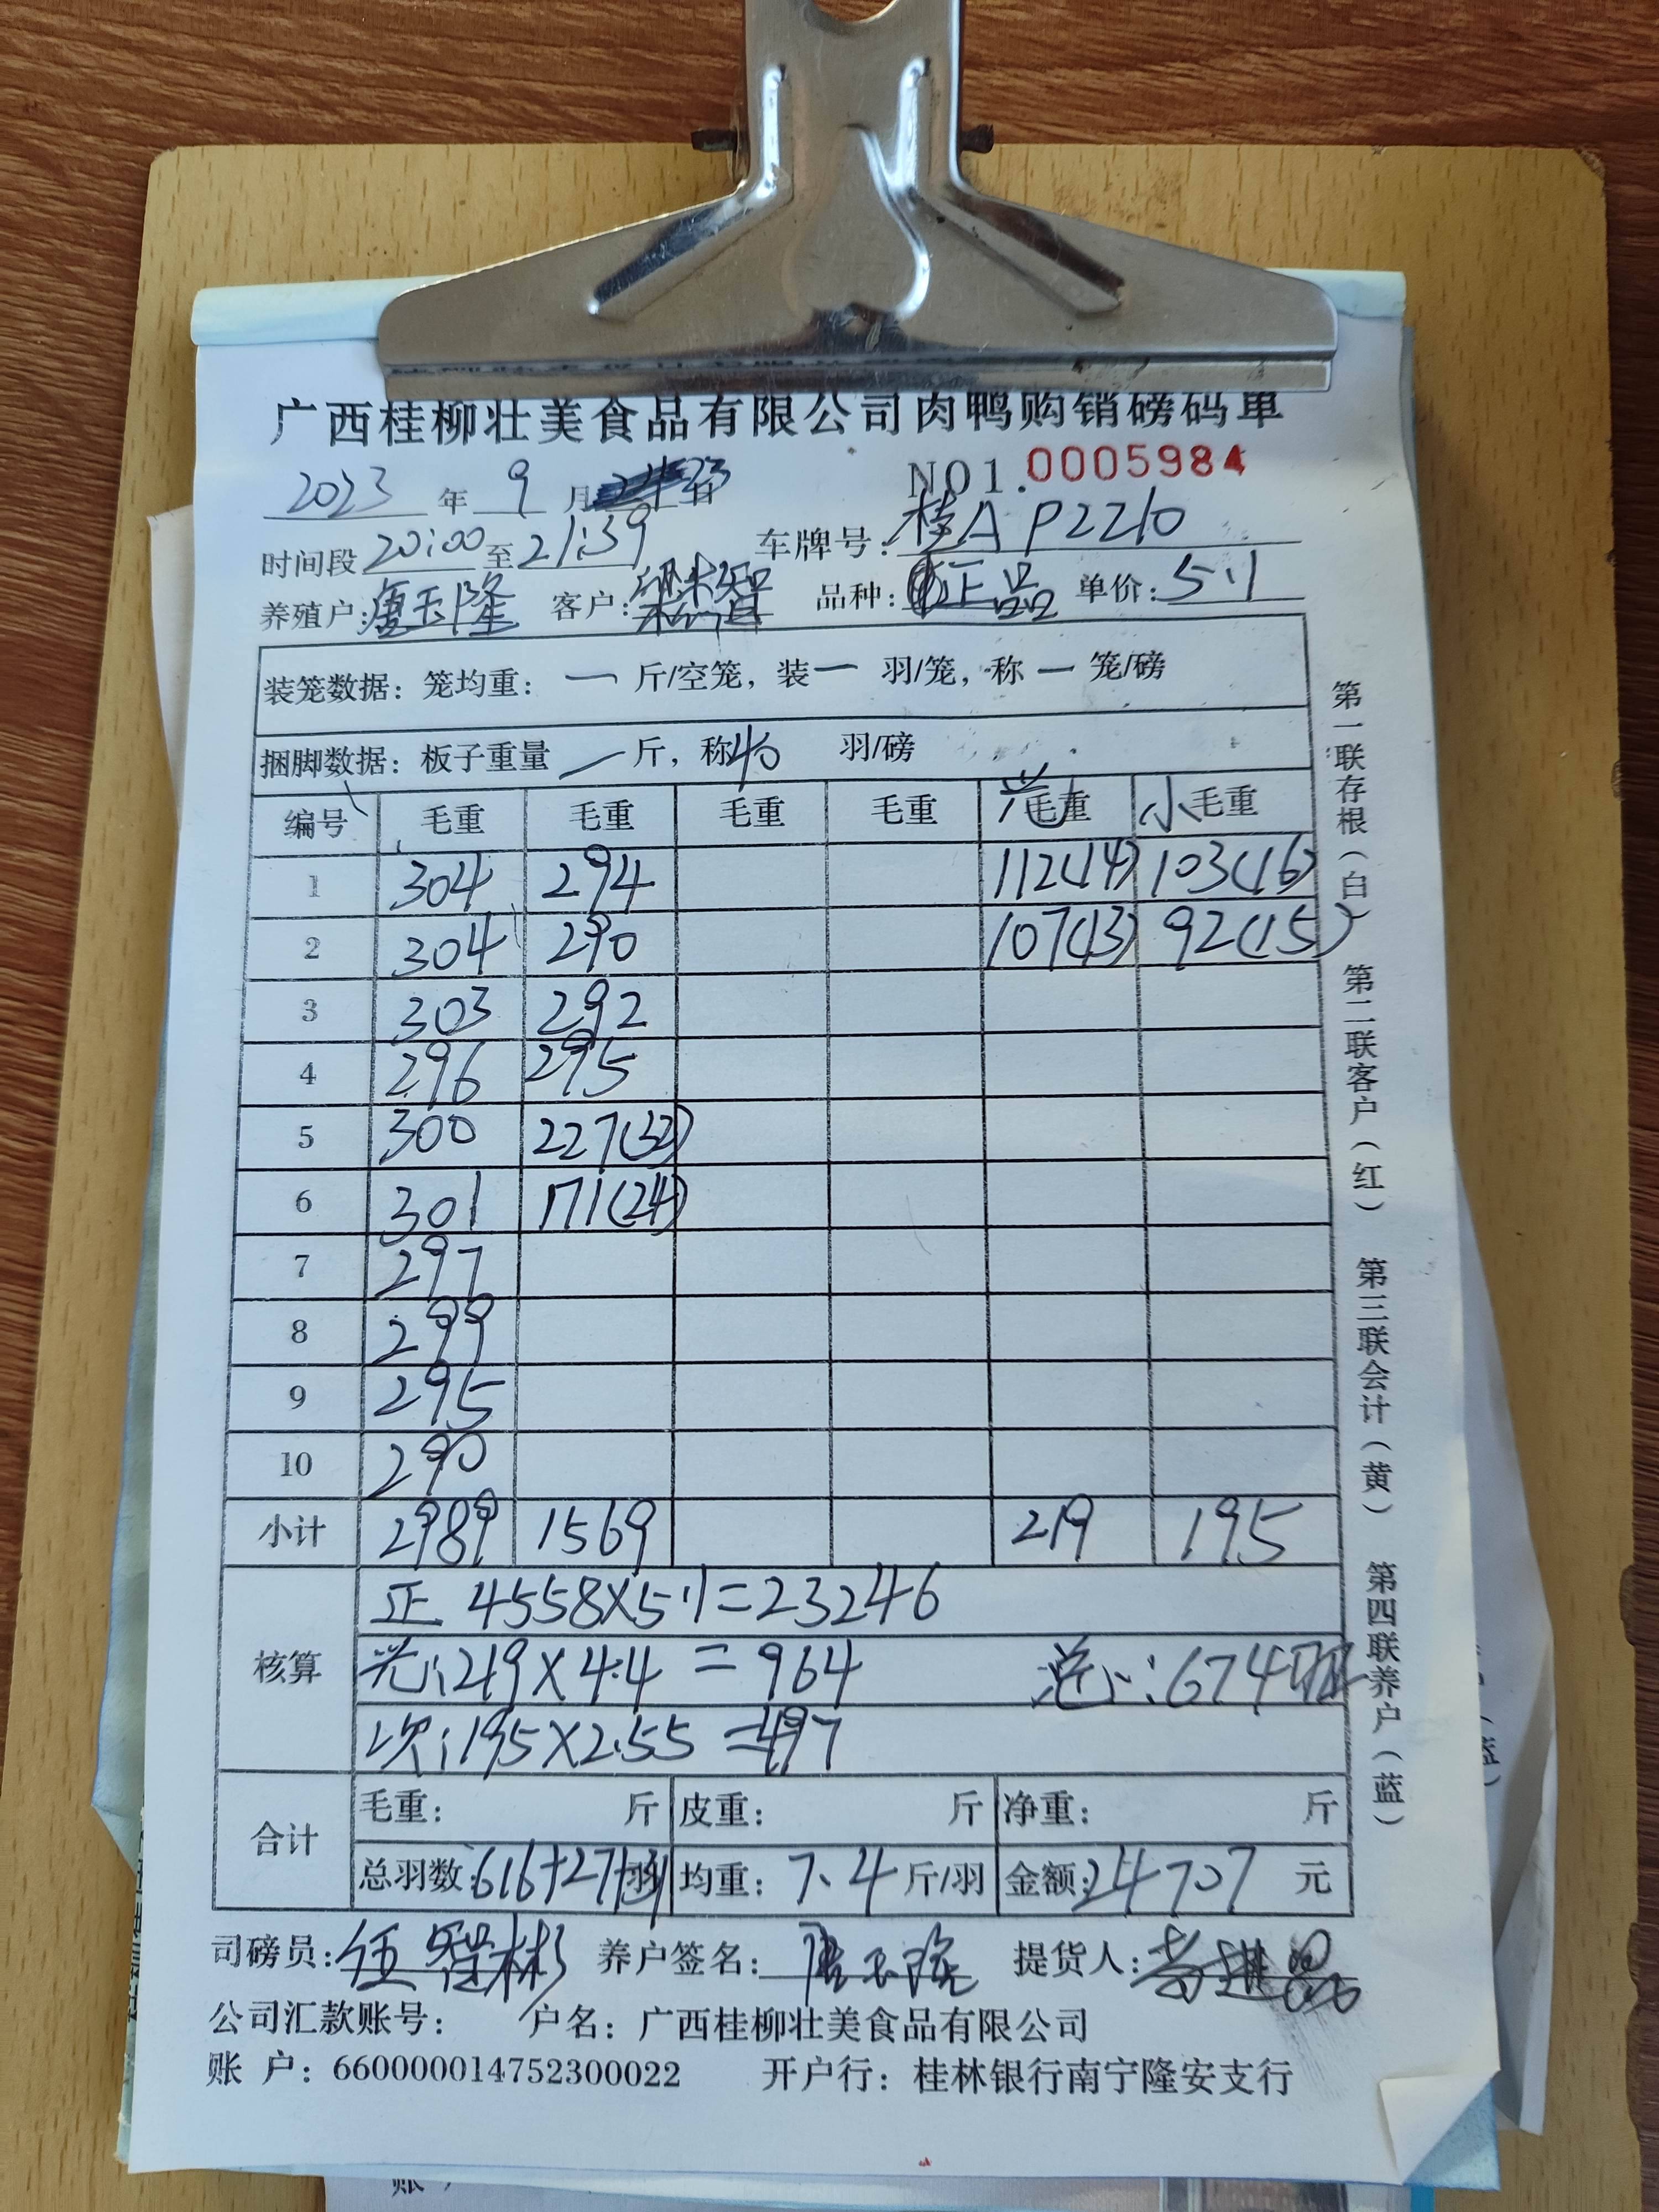 广西桂柳壮美食品有限公司肉鸭购销磅码单
2023 年 9 月 23 日
NO1.0005984
时间段 20:00 至 21:39 车牌号: 桂A P2210
养殖户: 唐玉隆 客户: 品种: 正品 单价: 5.1
装笼数据: 笼均重: 一 斤/空笼, 装 一 羽/笼, 称 一 笼/磅
捆脚数据: 板子重量 一 斤, 称 40 羽/磅
编号 毛重 毛重 毛重 毛重 光 毛重 小 毛重
1 304 294 112(14) 103(16)
2 304 290 107(13) 92(15)
3 303 292
4 296 295
5 300 227(32)
6 301 171(24)
7 297
8 299
9 295
10 290
小计 2989 1569 219 195
核算
正 4558×5.1=23246
光:219×4.4=964 总:674羽
次:195×2.55=497
合计
毛重: 斤 皮重: 斤 净重: 斤
总羽数: 616+27+31 羽 均重: 7.4 斤/羽 金额: 24707 元
司磅员: 养户签名: 唐玉隆 提货人:
公司汇款账号: 户名: 广西桂柳壮美食品有限公司
账 户: 660000014752300022 开户行: 桂林银行南宁隆安支行
第一联存根(白) 第二联客户(红) 第三联会计(黄) 第四联养户(蓝)